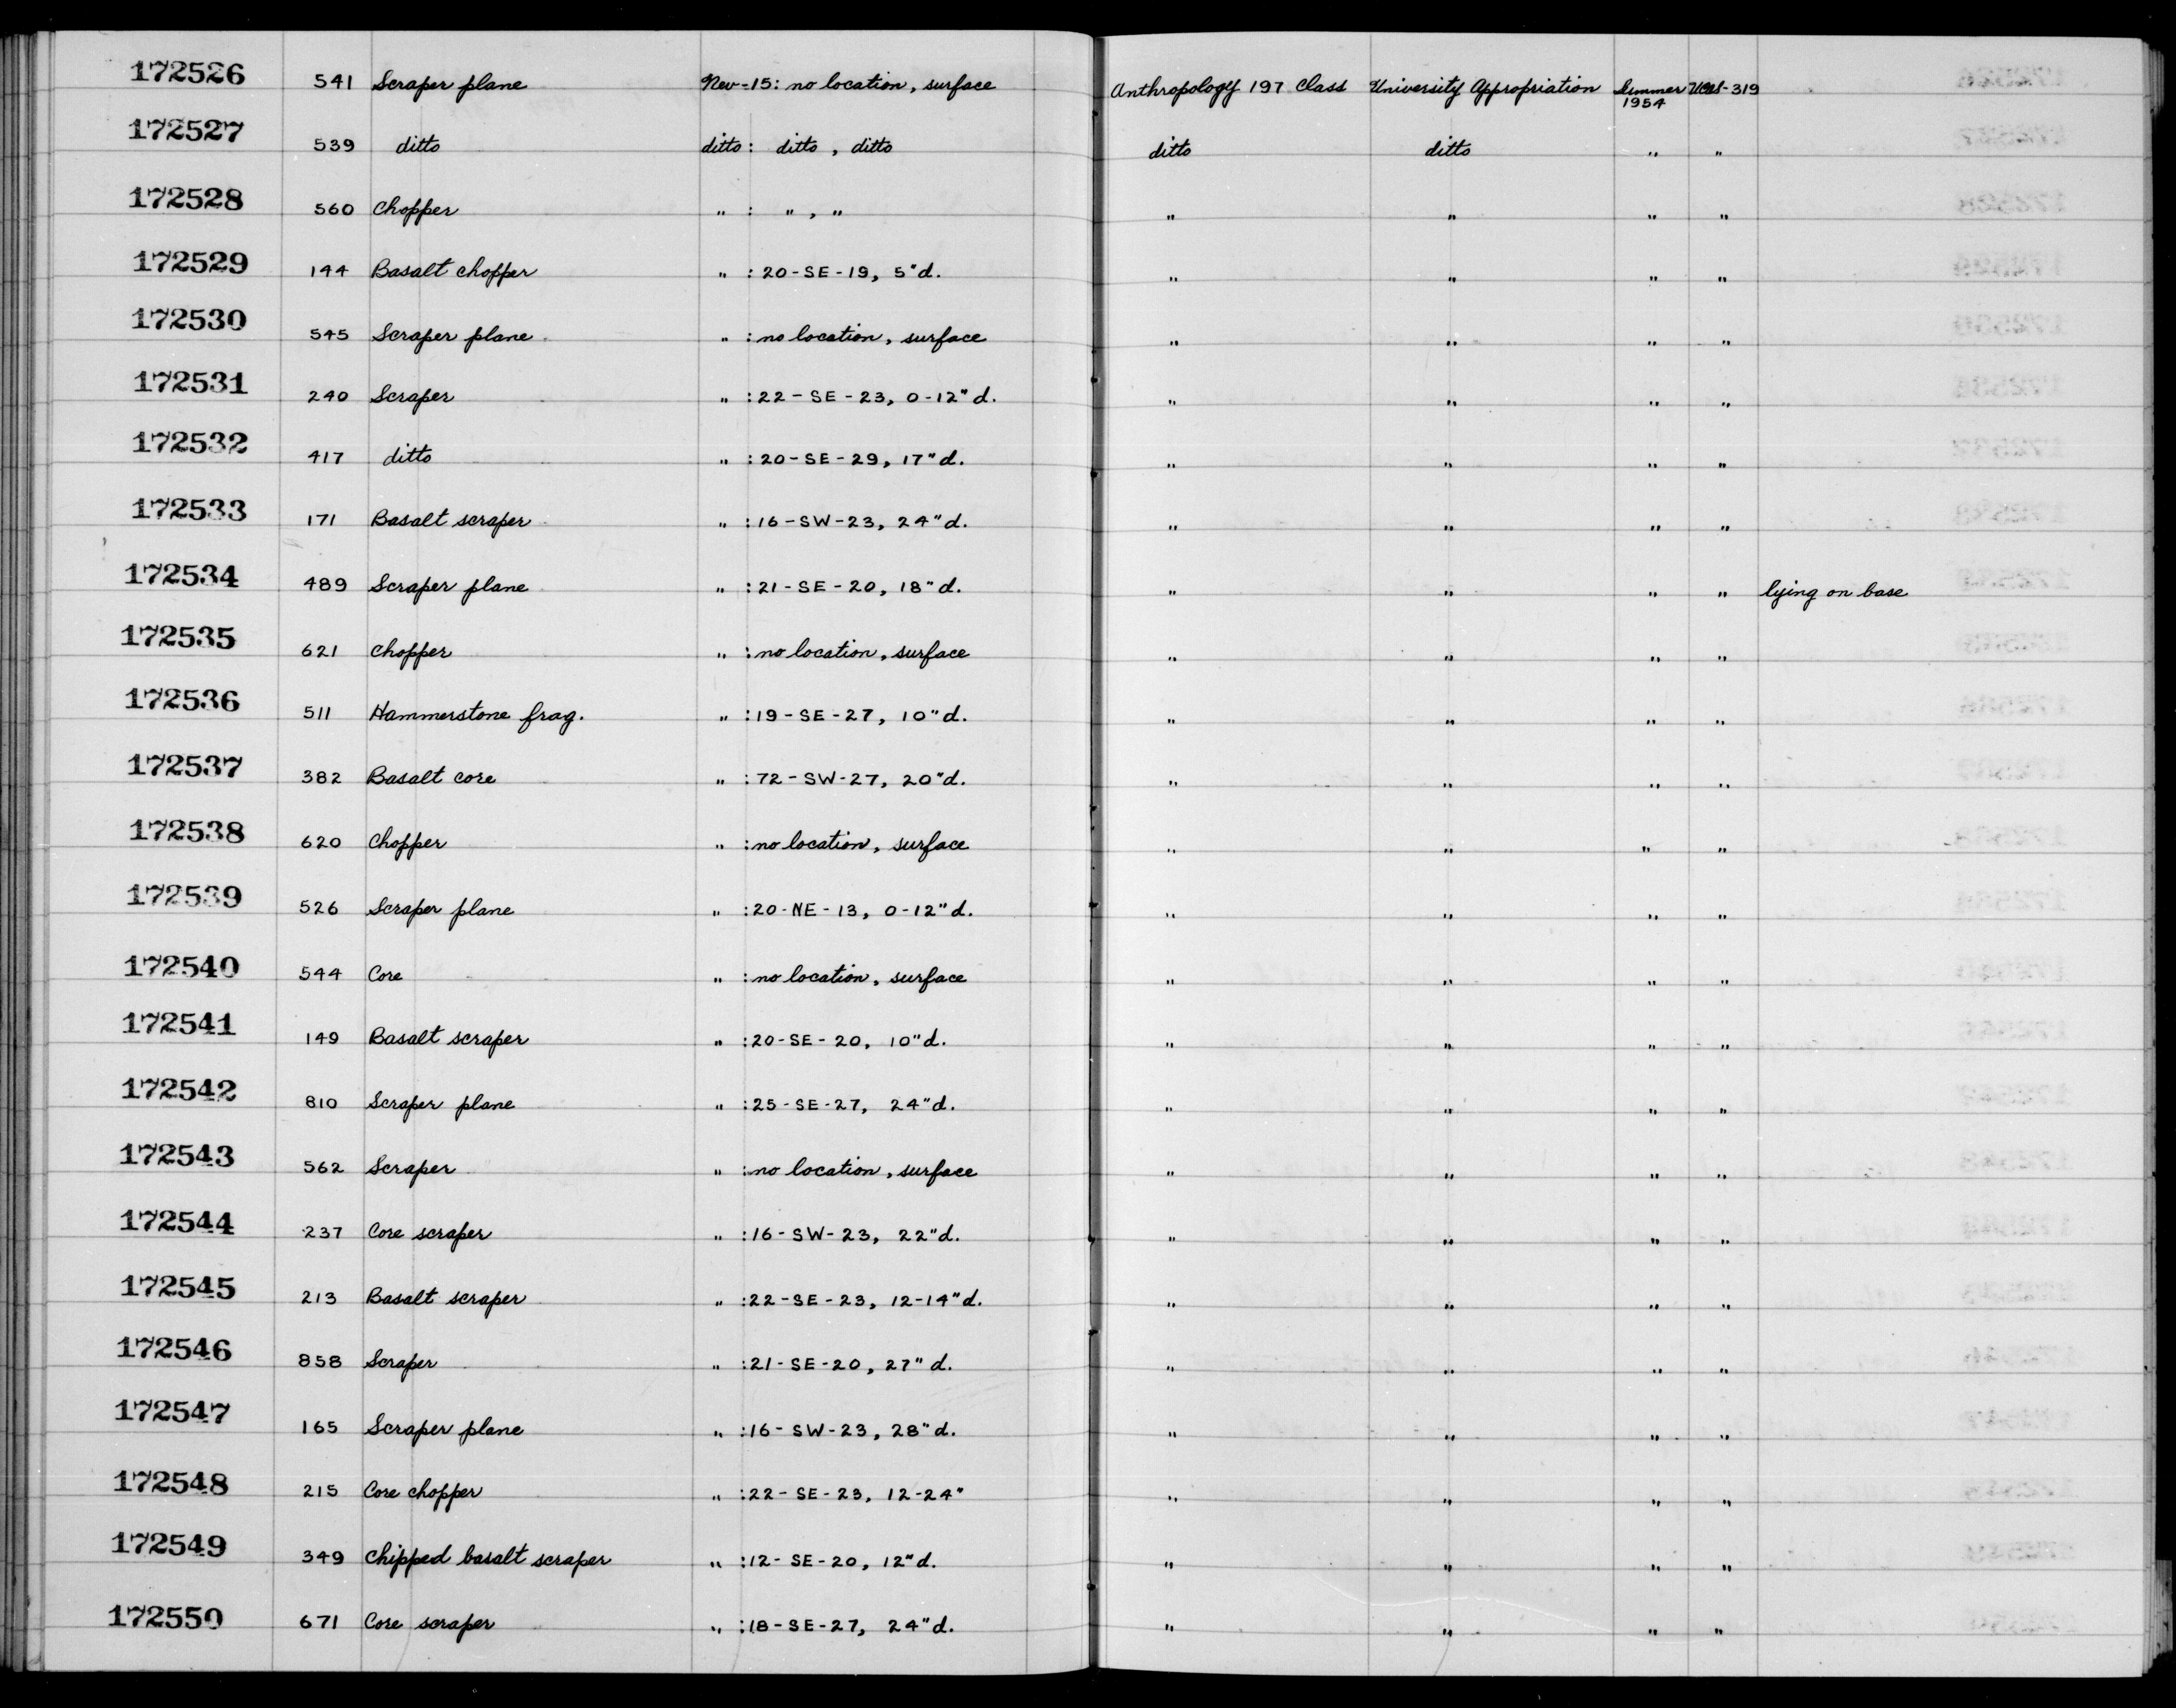 172526 541 Scraper plane Nev-15: no location, surface Anthropology 197 Class University Appropriation Summer 1954 UCAS-319
172527 539 ditto ditto: ditto, ditto ditto ditto " "
172528 560 Chopper " : ", " " " " "
172529 144 Basalt chopper " : 20-SE-19, 5"d. " " " "
172530 545 Scraper plane " : no location, surface " " " "
172531 240 Scraper " : 22-SE-23, 0-12"d. " " " "
172532 417 ditto " : 20-SE-29, 17"d. " " " "
172533 171 Basalt scraper " : 16-SW-23, 24"d. " " " "
172534 489 Scraper plane " : 21-SE-20, 18"d. " " " " lying on base
172535 621 Chopper " : no location, surface " " " "
172536 511 Hammerstone frag. " : 19-SE-27, 10"d. " " " "
172537 382 Basalt core " : 72-SW-27, 20"d. " " " "
172538 620 Chopper " : no location, surface " " " "
172539 526 Scraper plane " : 20-NE-13, 0-12"d. " " " "
172540 544 Core " : no location, surface " " " "
172541 149 Basalt scraper " : 20-SE-20, 10"d. " " " "
172542 810 Scraper plane " : 25-SE-27, 24"d. " " " "
172543 562 Scraper " : no location, surface " " " "
172544 237 Core scraper " : 16-SW-23, 22"d. " " " "
172545 213 Basalt scraper " : 22-SE-23, 12-14"d. " " " "
172546 858 Scraper " : 21-SE-20, 27"d. " " " "
172547 165 Scraper plane " : 16-SW-23, 28"d. " " " "
172548 215 Core chopper " : 22-SE-23, 12-24" " " " "
172549 349 Chipped basalt scraper " : 12-SE-20, 12"d. " " " "
172550 671 Core scraper " : 18-SE-27, 24"d. " " " "